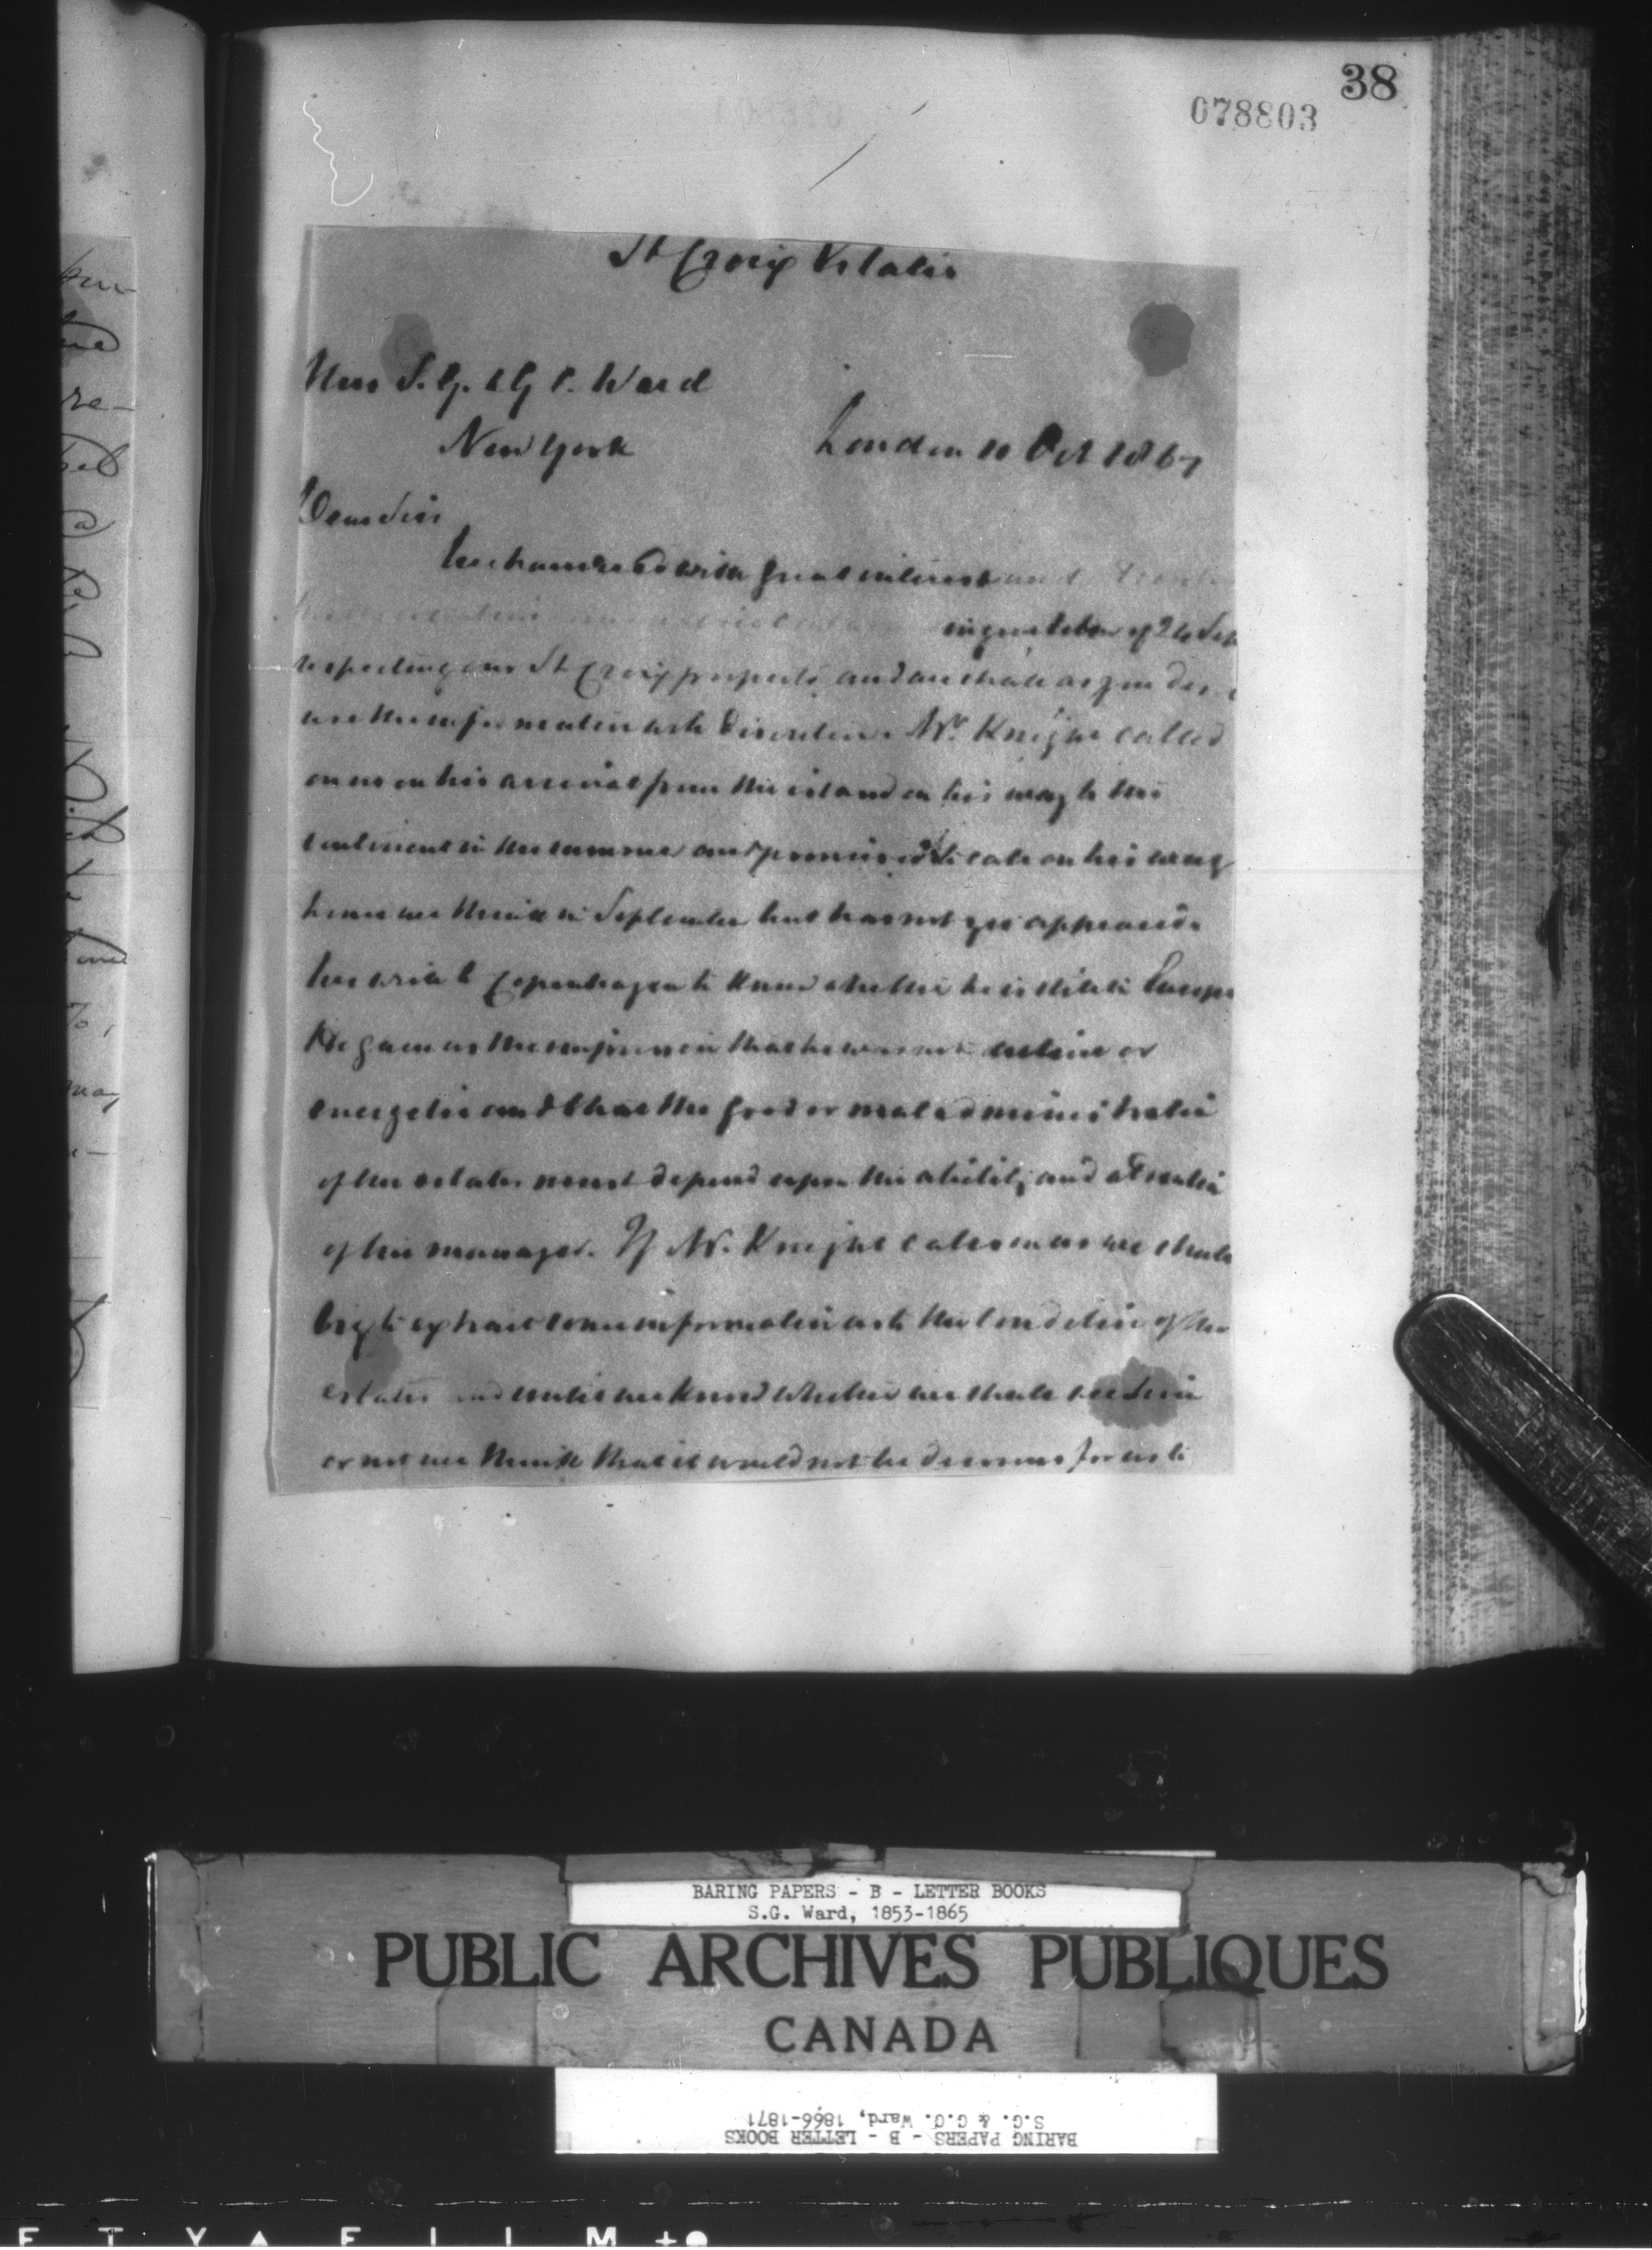 38
078803
St Croix Estates
Mess S. G. & G C. Ward
New York
London 10 Oct 1867
Dear Sirs
We have read with great interest and
in your letter of 24 Sep
respecting our St Croix property and we shall as you desire
use the information with discretion. Mr. Knight called
on us on his arrival from the island on his way to the
continent in the summer and promised to call on his way
home we think in September but has not yet appeared.
We write to Copenhagen to know whether he is still in Europe
He gave us the impression that he was not active or
energetic and that the good or maladministration
of the estates must depend upon the ability and attention
of his manager. If Mr. Knight calls on us we shall
try to extract some information as to the condition of the
estates and until we know whether we shall see him
or not we think that it would not be for us to
BARING PAPERS - B - LETTER BOOKS
S.G. Ward, 1853-1865
PUBLIC ARCHIVES PUBLIQUES
CANADA
BARING PAPERS - B - LETTER BOOKS
S.G. & G.C. Ward, 1866-1871